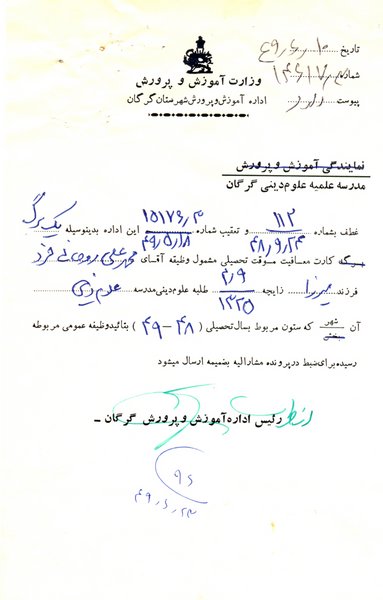 تاریخ ۴۹٫۶٫۱۰
شماره
پیوست دارد
وزارت آموزش و پرورش
اداره آموزش و پرورش شهرستان گرگان
نمایندگی آموزش و پرورش
مدرسه علمیه علوم دینی گرگان
عطف بشماره ۱۱۲ ۴۸٫۹٫۲۴ و تعقیب شماره ۱۵۱۷۶٫۳ ۴۹٫۵٫۱۸ این اداره بدینوسیله یک برگ
کارت معافیت موقت تحصیلی مشمول وظیفه آقای محمد علی روحانی فرد
فرزند میرزا زایجه ۴٫۹ ۱۳۲۵ طلبه علوم دینی مدرسه علوم دینی
آن شهر بخش که ستون مربوط بسال تحصیلی ( ۴۸-۴۹ ) بتائید وظیفه عمومی مربوطه
رسیده برای ضبط در پرونده مشارالیه بضمیمه ارسال میشود
رئیس اداره آموزش و پرورش گرگان –
۴۹٫۶٫۲۳